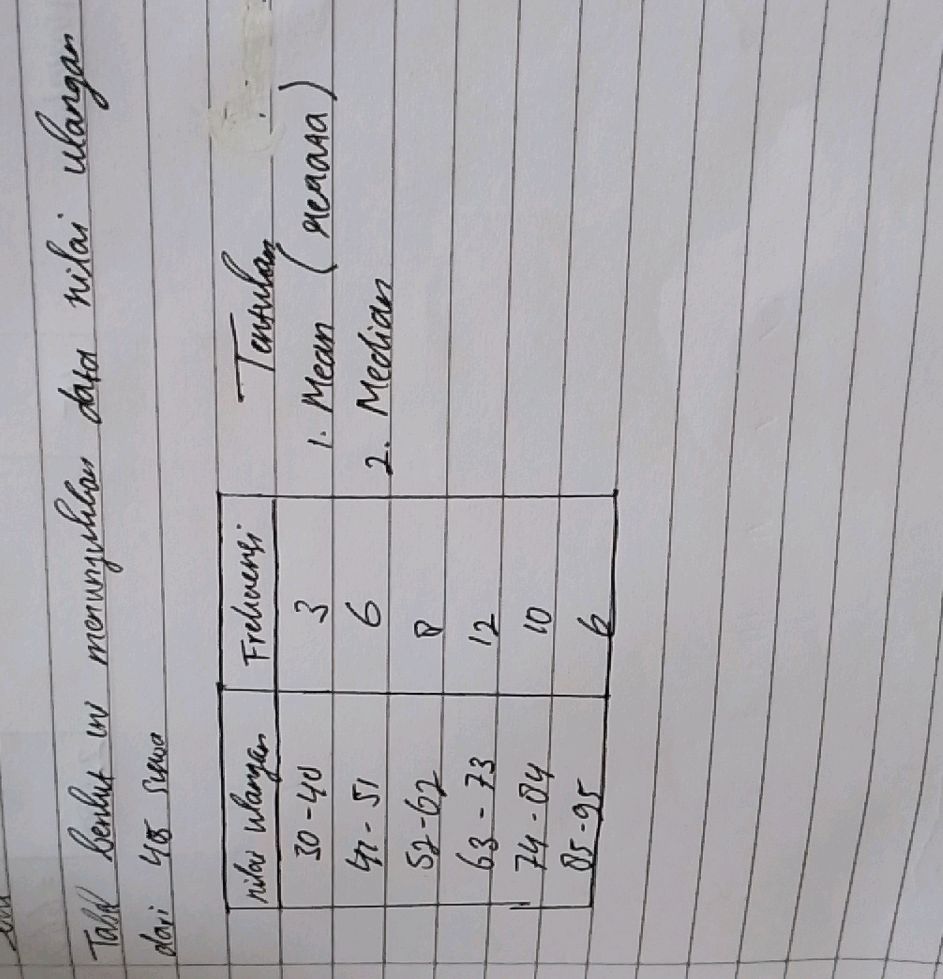 Tabel berikut ini menunjukkan data nilai ulangan
dari 45 siswa
nilai ulangan Frekuensi
30-40 3
41-51 6
52-62 8
63-73 12
74-84 10
85-95 6
Tentukan
1. Mean (rerata)
2. Median